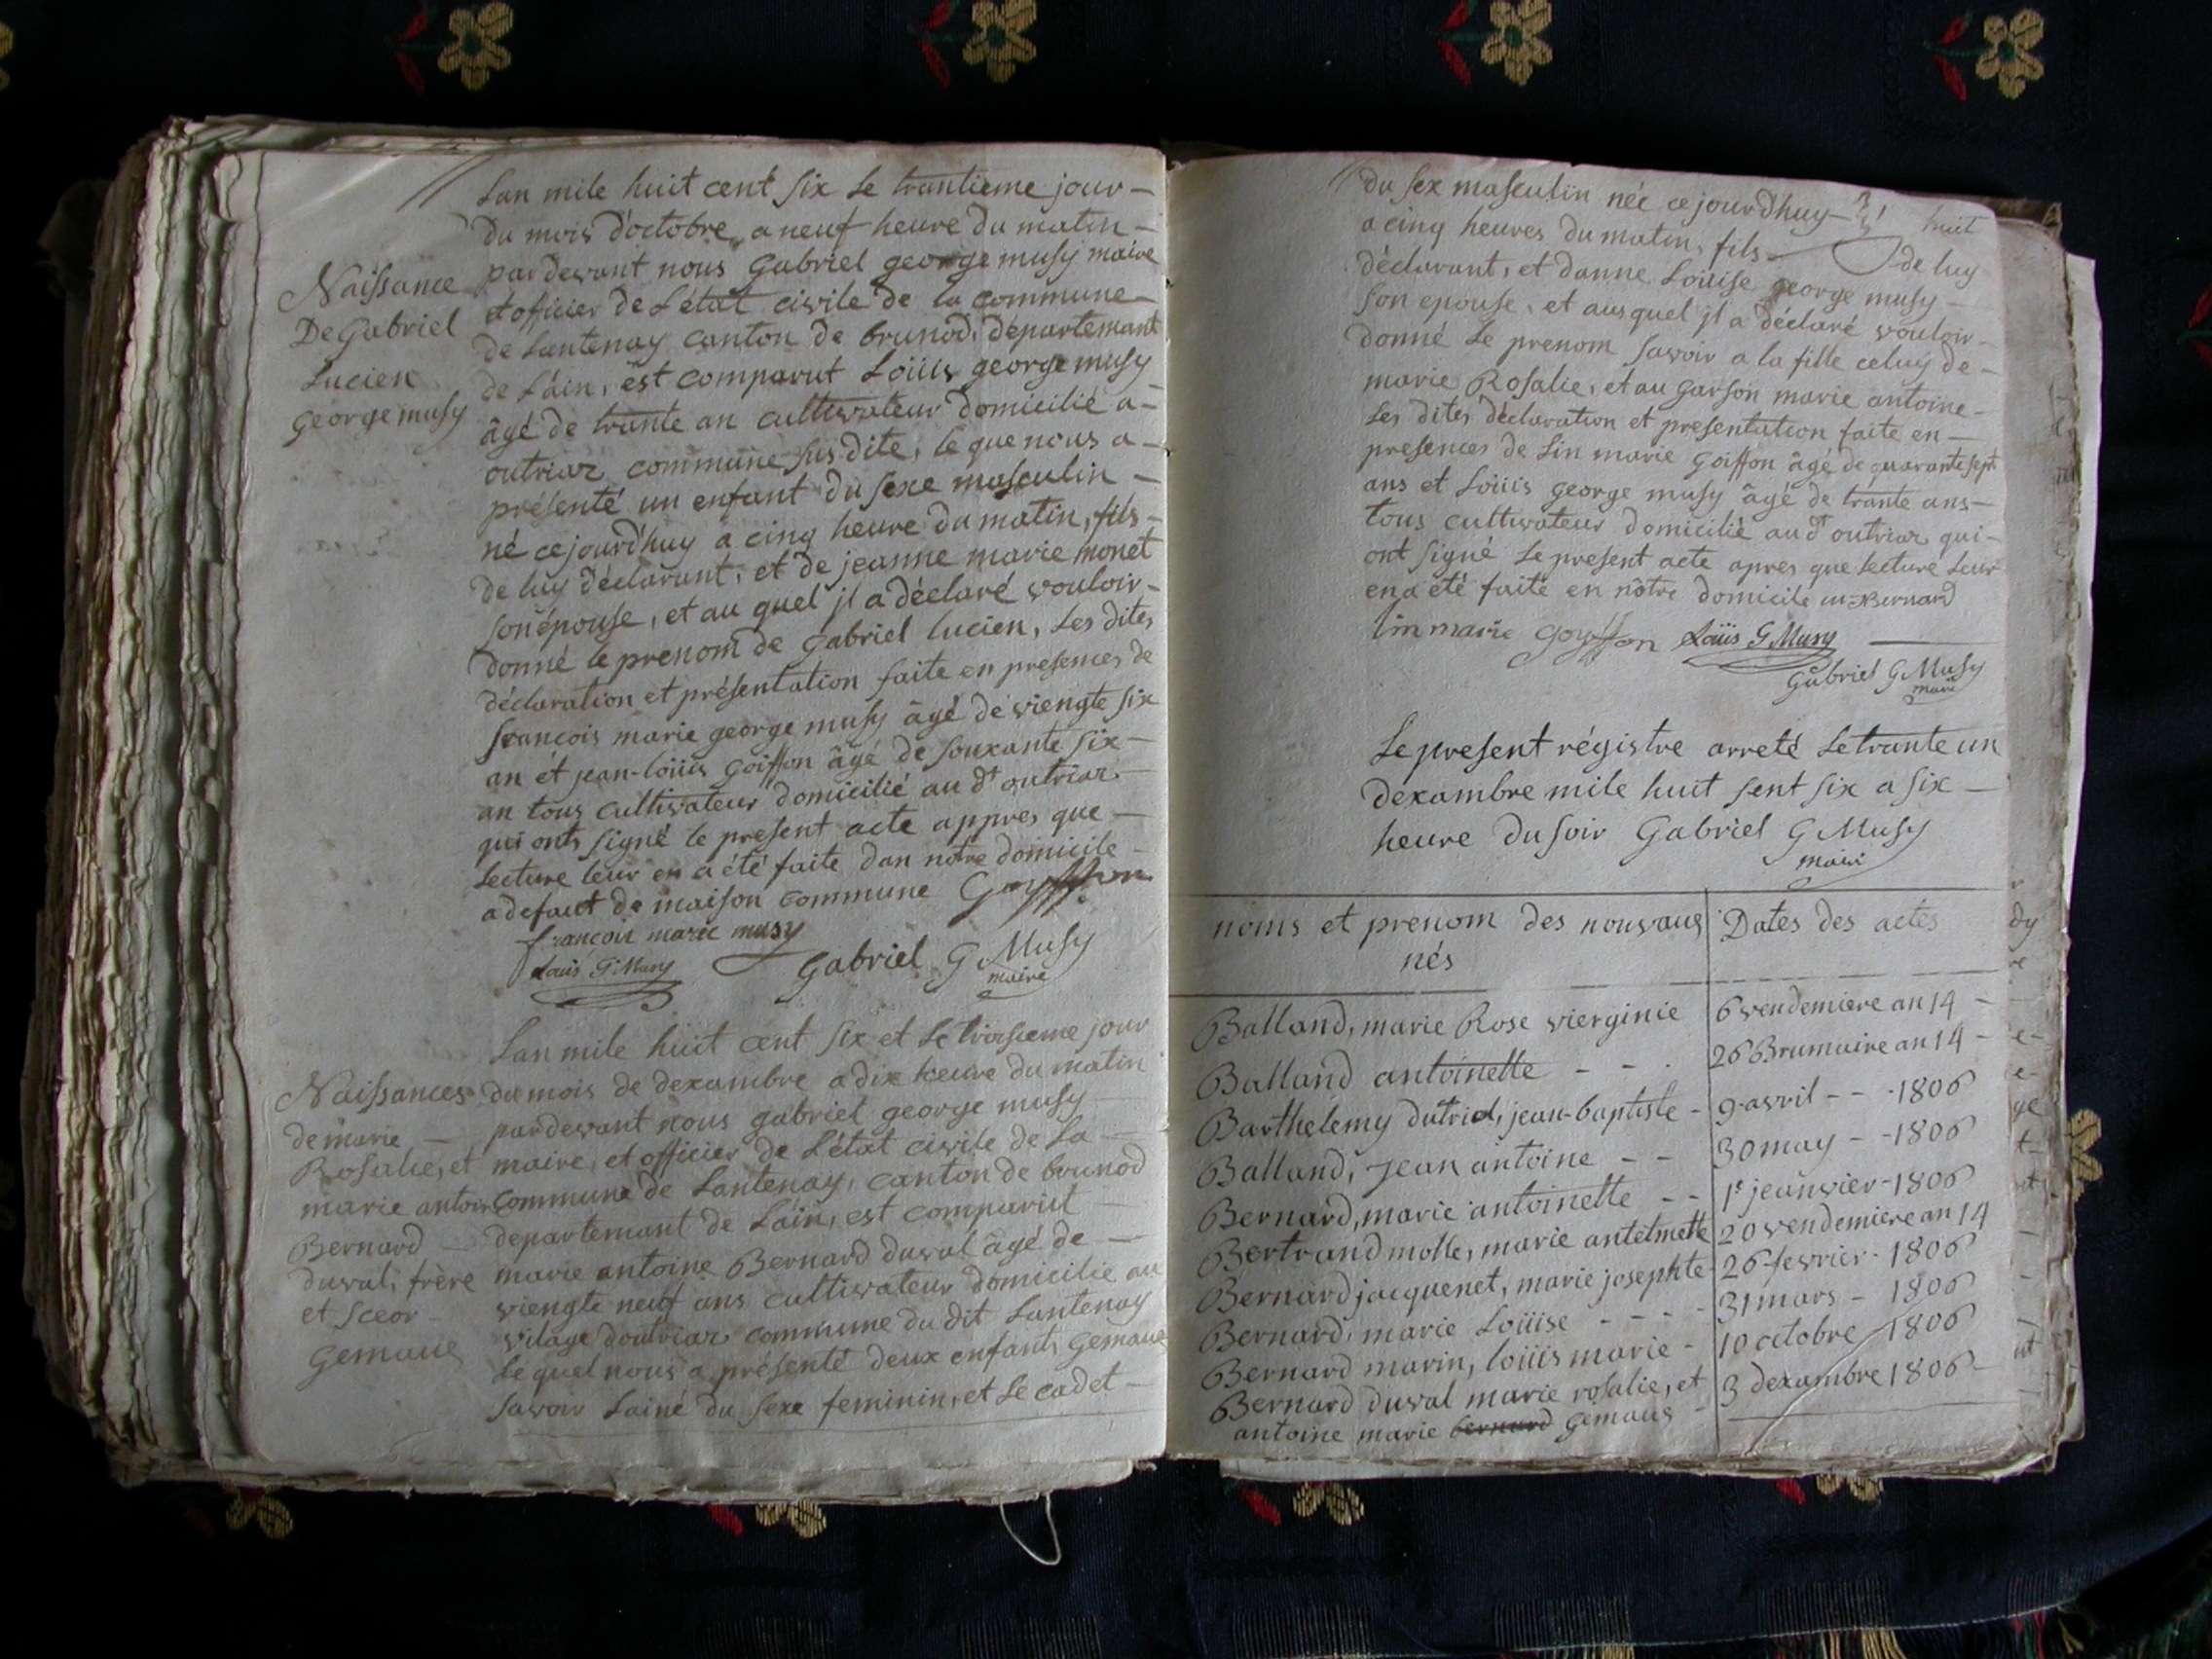 Lan mile huit cent six Le trantieme jour -
du mois d'octobre, a neuf heure du matin -
par devant nous Gabriel george musy maire
et officier de L'état civile de la commune -
de Lantenay canton de brunod, departemant
de Láin, est comparut Loüis george musy
âgé de trante an cultivateur domicilié a -
outriaz commune susdite, le que nous a -
présenté un enfant du sexe masculin -
né cejourd'huy a cinq heure du matin, fils -
de luy déclarant, et de jeanne marie monet
son épouse, et au quel jl a déclaré vouloir -
donné le prenom de Gabriel lucien, Les dites
déclaration et présentation faite en presences de
francois marie george musy âgé de viengte six
an et jean-loüis Goiffon âgé de souxante six -
an tous cultivateur domicilié au dt outriaz -
qui onts signé le present acte appres que -
Lecture leur en a été faite dan notre domicile -
a defaut de maison commune Goyffon
francois marie musy
Louis G Musy Gabriel G Musy
maire
Naissance
De Gabriel
Lucien
George musy
Lan mile huit cent six et Le troisieme jour
du mois de dexambre a dix heure du matin
pardevant nous gabriel george musy -
maire, et officier de L'état civile de La -
commune de Lantenay, canton de brunod
departemant de Láin, est comparut -
marie antoine Bernard duval âgé de -
viengte neuf ans cultivateur domicilie au
vilage doutriaz commune du dit Lantenay
Le quel nous a présenté deux enfants Gemaux
savoir Lainé du sexe feminin, et Le cadet -
Naissances
de marie -
Rosalie, et
marie antoin
Bernard -
duval, frère
et sceor -
Gemaux
du sex masculin née cejourdhuy - huit
a cinq heures du matin, fils - de luy
déclarant, et danne Loüise george musy -
son epouse, et ausquel jl a déclaré vouloir -
donné Le prenom savoir a la fille celuy de -
marie Rosalie, et au garson marie antoine -
Les dites déclaration et presentation faite en -
presences de Lin marie Goiffon âgé de quarante sept
ans et Loüis george musy âgé de trante ans -
tous cultivateur domicilié aud outriaz qui -
ont signé Le present acte apres que Lecture Leur
en a été faite en nôtre domicile m=Bernard
lin marie Goyffon Loüis G Musy
Gabriel G Musy
maire
Le present régistre arreté Le trante un
dexambre mile huit sent six a six -
heure du soir Gabriel G Musy
maire
noms et prenom des nouvaus Dates des actes
nés
Balland, marie Rose vierginie 6 vendemiere an 14 -
Balland antoinette - - . 26 Brumaire an 14 -
Barthelemy dutriel, jean-baptiste - 9 avril - - - 1806
Balland, jean antoine - - 30 may - - 1806
Bernard, marie antoinette - - 1r jeanvier - 1806
Bertrand molle, marie antelmette 20 vendemiere an 14
Bernard jacquenet, marie josephte 26 fevrier - 1806
Bernard, marie Loüise - - - - 31 mars - 1806
Bernard marin, loüis marie - 10 octobre 1806
Bernard duval marie rosalie, et 3 dexambre 1806 -
antoine marie bernard gemaus -